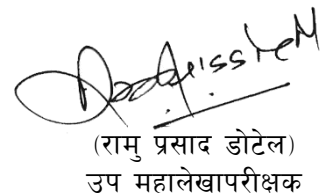 (रामु प्रसाद डोटेल)
उप महालेखापरीक्षक